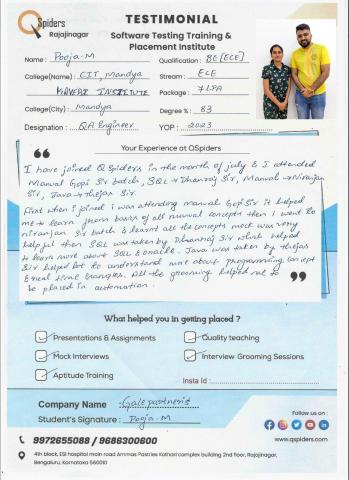 QSpiders
Rajajinagar
TESTIMONIAL
Software Testing Training &
Placement Institute
Name : Pooja-M
Qualification : BE [ECE]
College(Name) : CIT, Mandya
Stream : ECE
KAVERI INSTITUTE
Package : 7 LPA
College(City) : Mandya
Degree % : 83
Designation : QA Engineer
YOP : 2023
Your Experience at QSpiders
I have joined QSpiders in the month of july & I attended
Manual Gopi Sir batch, SQL → Dhanraj Sir, Manual → Niranjan
Sir, Java → Thejas Sir.
First when I joined I was attending manual Gopi Sir It helped
me to learn from basics of all manual concepts then I went to
niranjan Sir batch & learnt all the concepts most was very
helpful then SQL was taken by Dhanraj Sir which helped
to learn more about SQL & oracle. Java was taken by thejas
Sir helped lot to understand more about programming concept
& real time examples. All the grooming helped me to
be placed in automation.
What helped you in getting placed ?
Presentations & Assignments
Quality teaching
Mock Interviews
Interview Grooming Sessions
Aptitude Training
Insta Id :
Company Name : Galepartners
Student's Signature : Pooja-M
Follow us on :
9972655088 / 9686300600
www.qspiders.com
4th block, ESI hospital main road Ammas Pastries Kathari complex building 2nd floor, Rajajinagar,
Bengaluru, Karnataka 560010